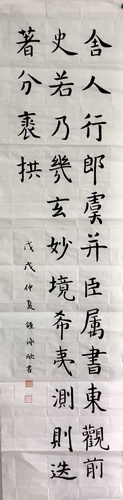 舍人行郎虞并臣属書東觀前
史若乃幾玄妙境希夷測則迭
著分裹拱
戊戌仲夏鍾泳欣書